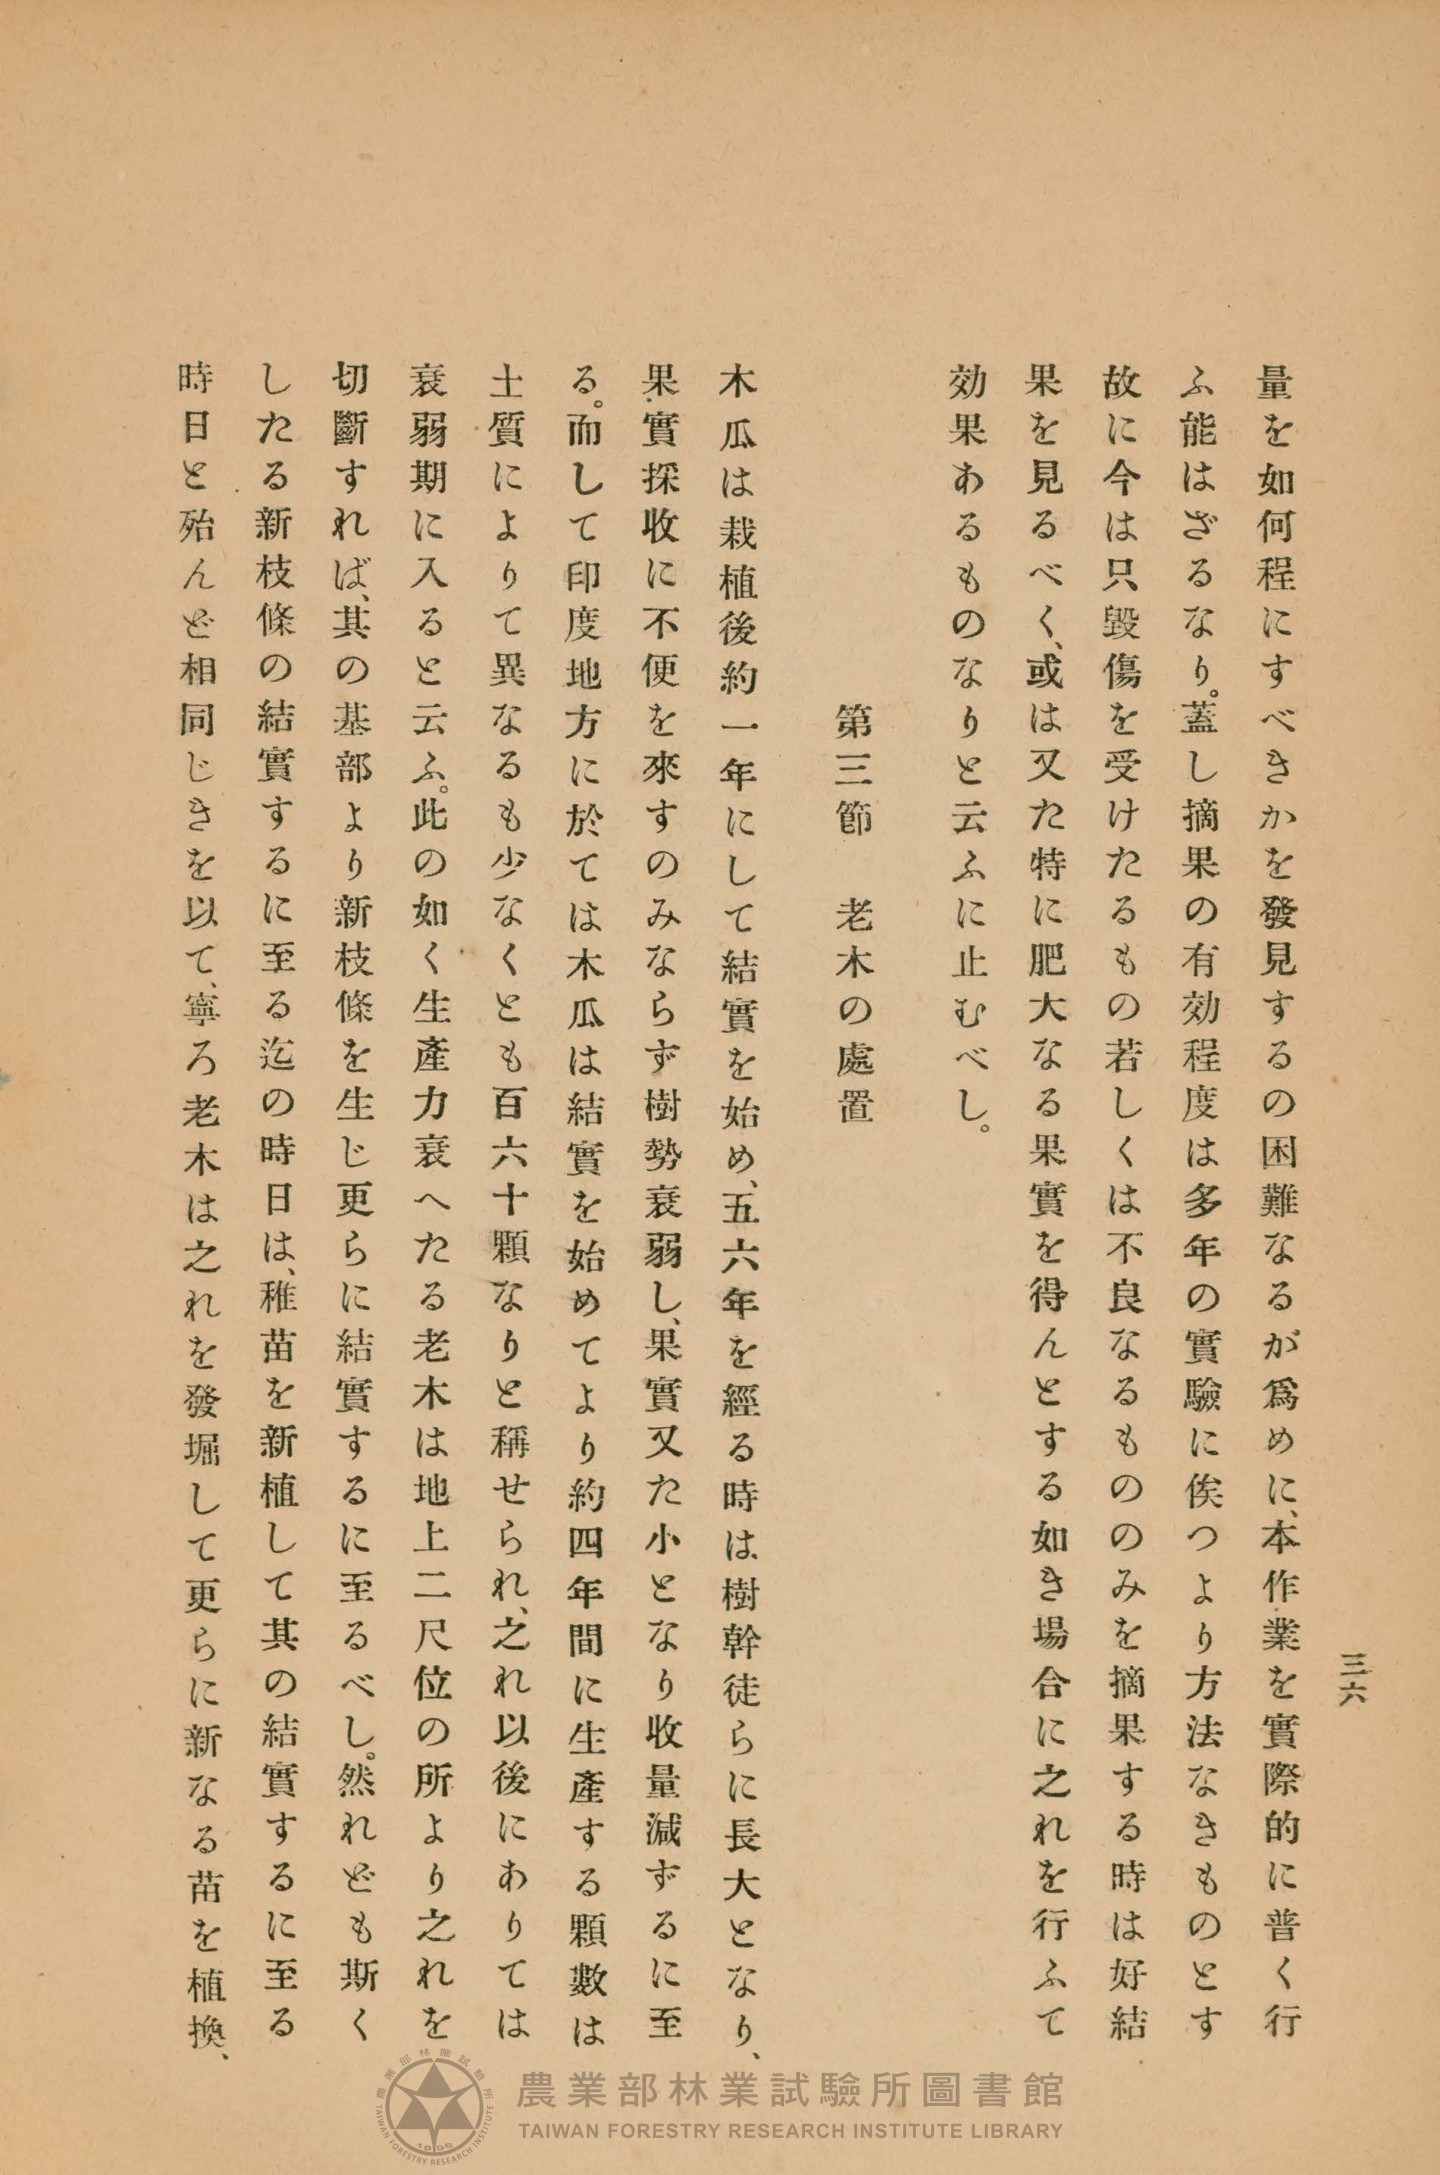 三六
量を如何程にすべきかを發見するの困難なるが爲めに、本作業を實際的に普く行
ふ能はざるなり。蓋し摘果の有効程度は多年の實驗に俟つより方法なきものとす
故に今は只毀傷を受けたるもの若しくは不良なるもののみを摘果する時は好結
果を見るべく、或は又た特に肥大なる果實を得んとする如き場合に之れを行ふて
効果あるものなりと云ふに止むべし。
第三節　老木の處置
木瓜は栽植後約一年にして結實を始め、五六年を經る時は樹幹徒らに長大となり、
果實採收に不便を來すのみならず樹勢衰弱し、果實又た小となり收量減ずるに至
る。而して印度地方に於ては木瓜は結實を始めてより約四年間に生產する顆數は
土質によりて異なるも少なくとも百六十顆なりと稱せられ、之れ以後にありては
衰弱期に入ると云ふ。此の如く生產力衰へたる老木は地上二尺位の所より之れを
切斷すれば、其の基部より新枝條を生じ更らに結實するに至るべし。然れども斯く
したる新枝條の結實するに至る迄の時日は、稚苗を新植して其の結實するに至る
時日と殆んど相同じきを以て、寧ろ老木は之れを發堀して更らに新なる苗を植換、
農業部林業試驗所圖書館
TAIWAN FORESTRY RESEARCH INSTITUTE LIBRARY
農業部林業試驗所
TAIWAN FORESTRY RESEARCH INSTITUTE
1896